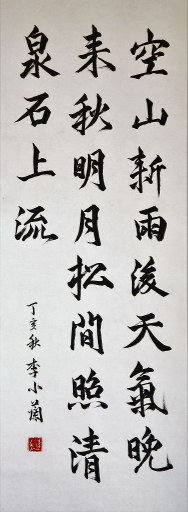 空山新雨後天氣晚
来秋明月松間照清
泉石上流
丁亥秋 李小蘭